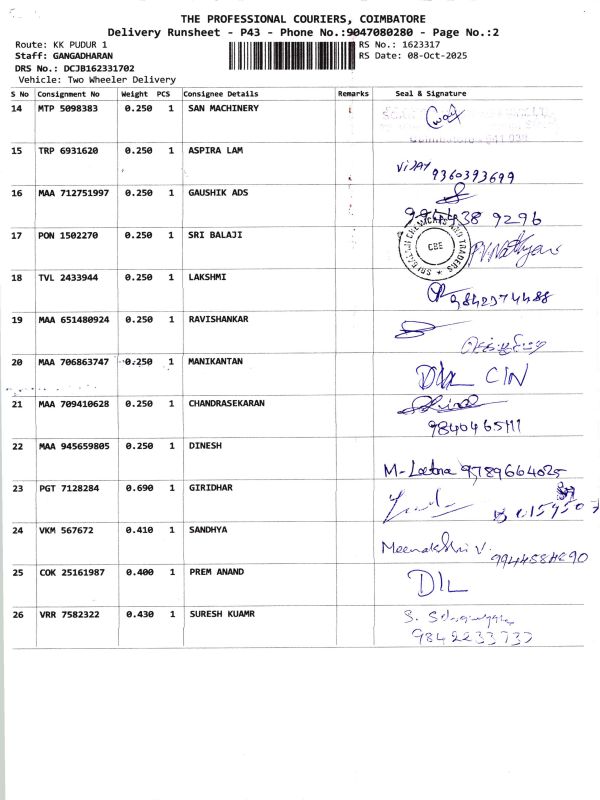 THE PROFESSIONAL COURIERS, COIMBATORE
Delivery Runsheet - P43 - Phone No.:9047080280 - Page No.:2
Route: KK PUDUR 1
RS No.: 1623317
Staff: GANGADHARAN
RS Date: 08-Oct-2025
DRS No.: DCJB162331702
Vehicle: Two Wheeler Delivery
S No Consignment No Weight PCS Consignee Details Remarks Seal & Signature
14 MTP 5098383 0.250 1 SAN MACHINERY
15 TRP 6931620 0.250 1 ASPIRA LAM
VIJAY 9360393699
16 MAA 712751997 0.250 1 GAUSHIK ADS
38 9296
17 PON 1502270 0.250 1 SRI BALAJI
SRI BALAJI CHEMICALS AND TRADERS
CBE
18 TVL 2433944 0.250 1 LAKSHMI
9842374488
19 MAA 651480924 0.250 1 RAVISHANKAR
20 MAA 706863747 0.250 1 MANIKANTAN
CIN
21 MAA 709410628 0.250 1 CHANDRASEKARAN
22 MAA 945659805 0.250 1 DINESH
M- 9789664025
23 PGT 7128284 0.690 1 GIRIDHAR
24 VKM 567672 0.410 1 SANDHYA
Meenakshi V.
25 COK 25161987 0.400 1 PREM ANAND
DIL
26 VRR 7582322 0.430 1 SURESH KUAMR
S.